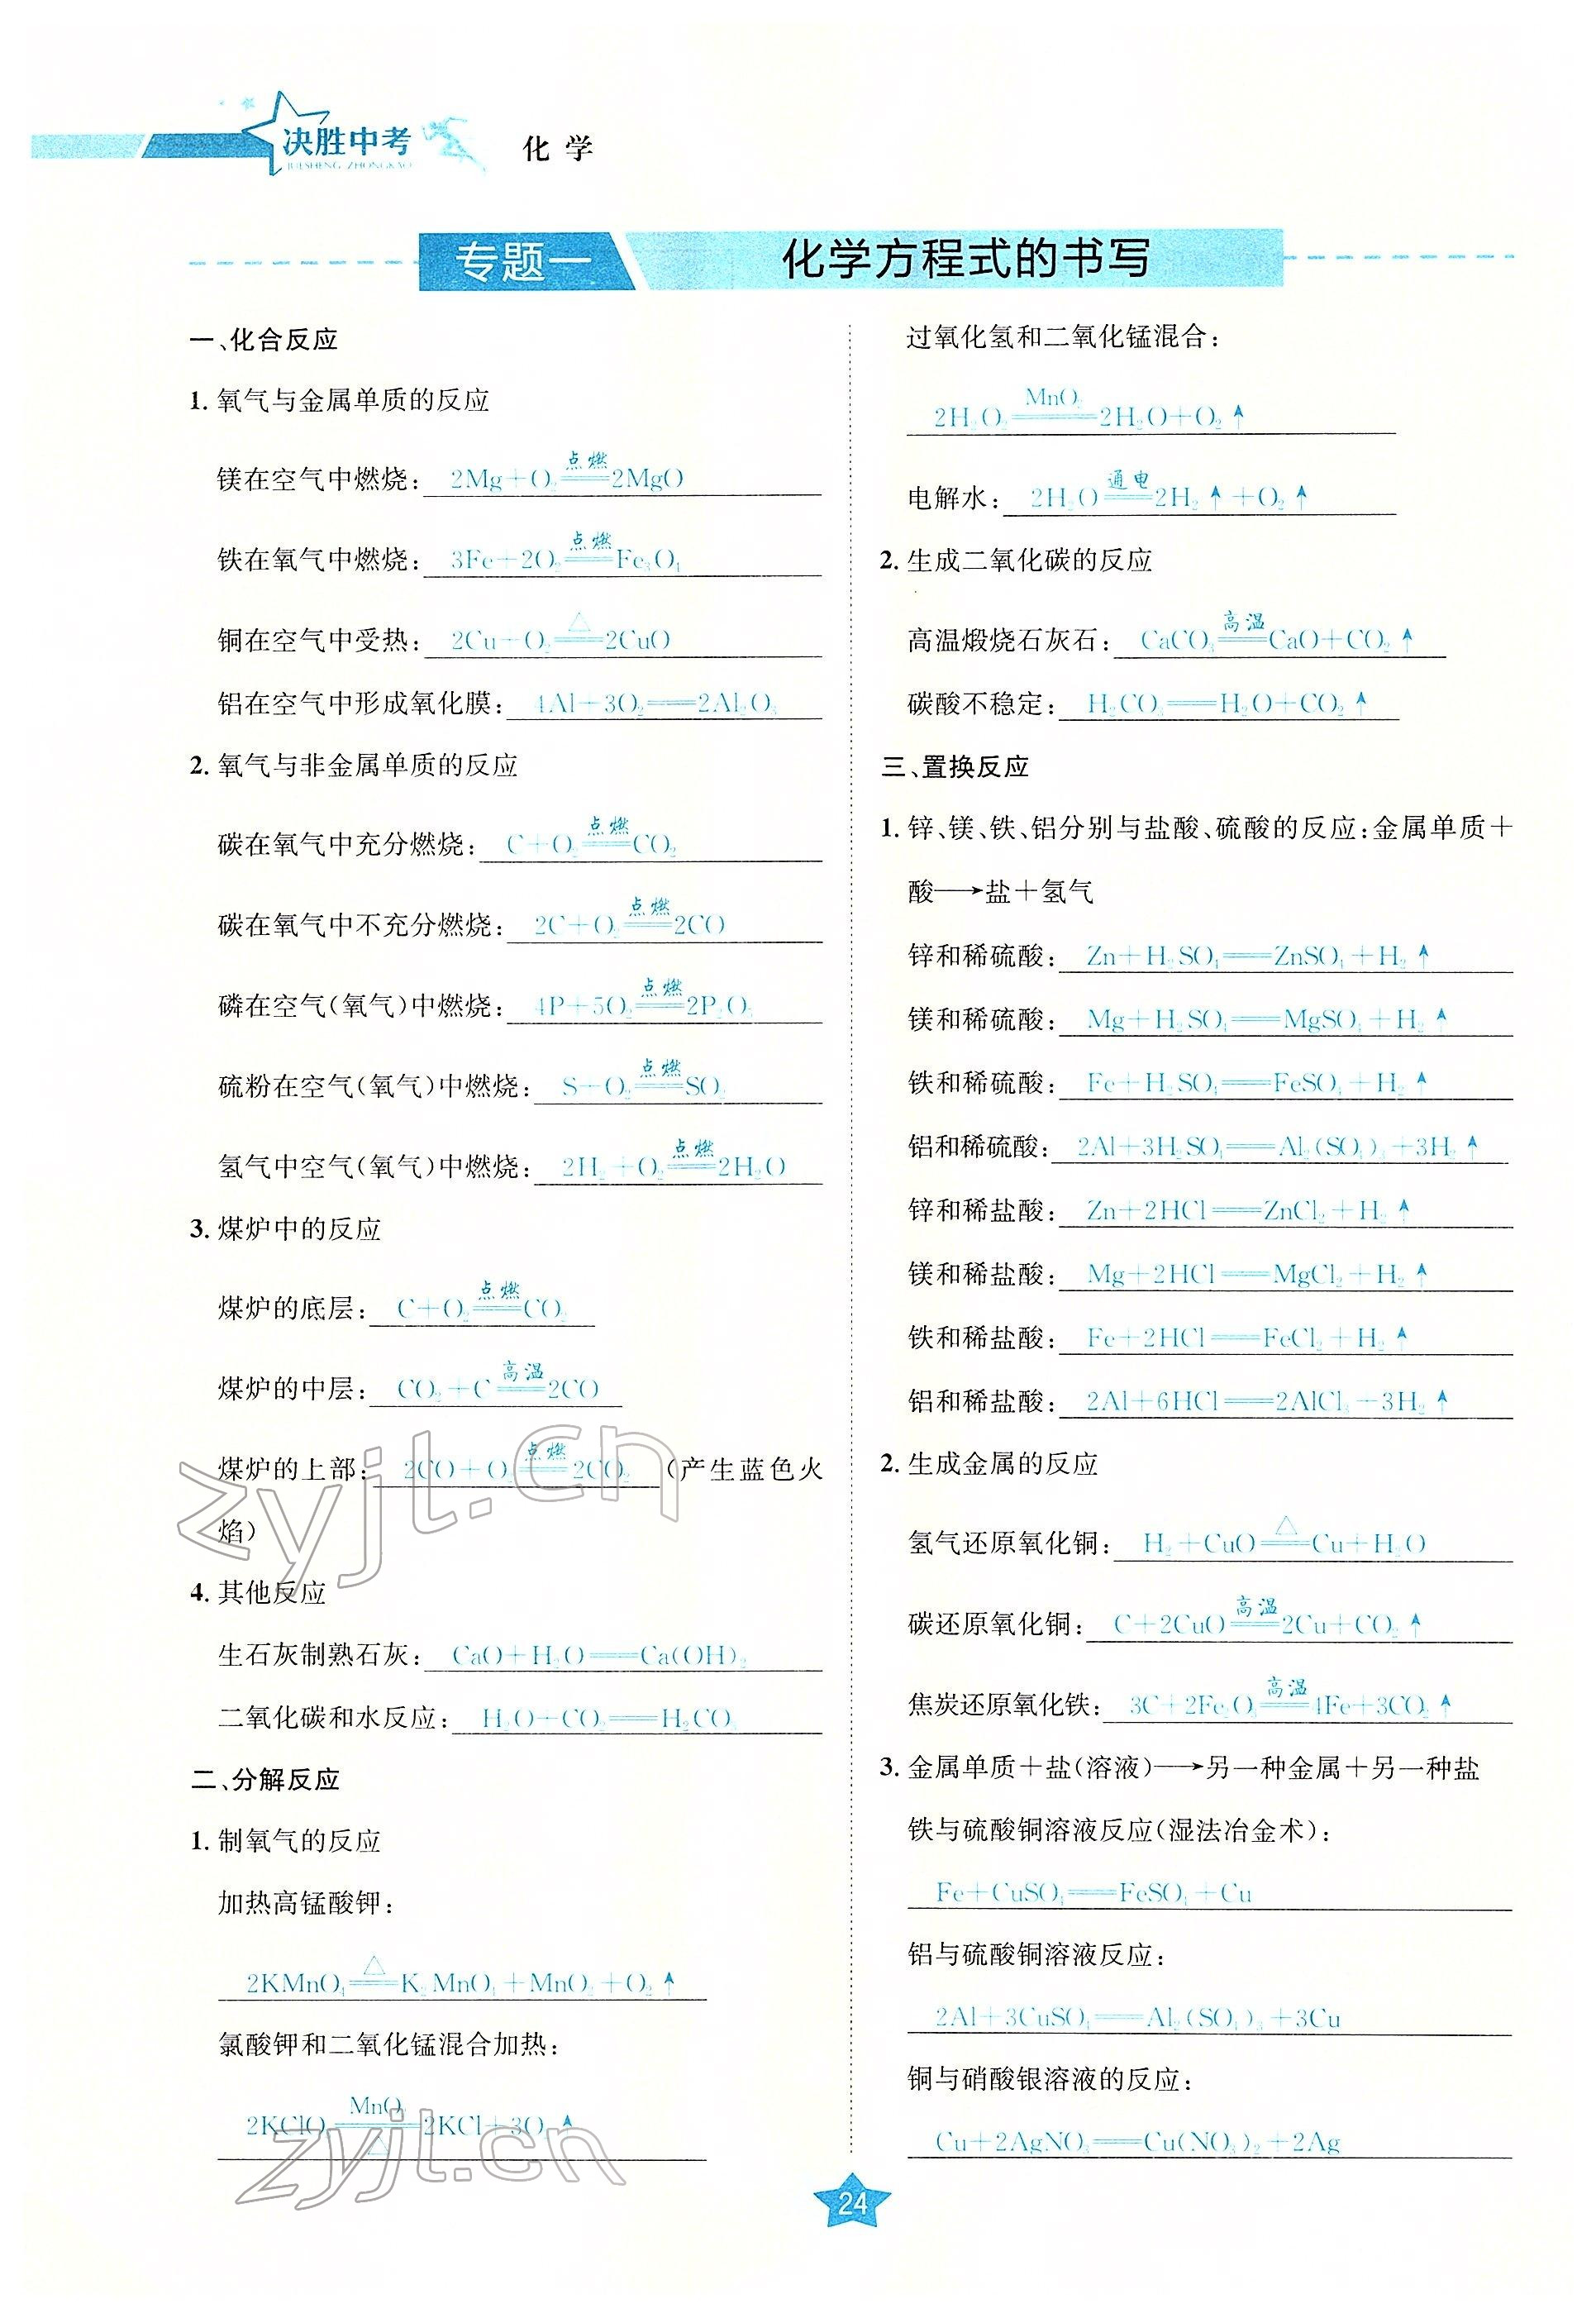 决胜中考
JUESHENG ZHONGKAO
化学
专题一 化学方程式的书写
一、化合反应
1. 氧气与金属单质的反应
点燃
镁在空气中燃烧: 2Mg+O₂══2MgO
点燃
铁在氧气中燃烧: 3Fe+2O₂══Fe₃O₄
△
铜在空气中受热: 2Cu+O₂══2CuO
铝在空气中形成氧化膜: 4Al+3O₂══2Al₂O₃
2. 氧气与非金属单质的反应
点燃
碳在氧气中充分燃烧: C+O₂══CO₂
点燃
碳在氧气中不充分燃烧: 2C+O₂══2CO
点燃
磷在空气(氧气)中燃烧: 4P+5O₂══2P₂O₅
点燃
硫粉在空气(氧气)中燃烧: S+O₂══SO₂
点燃
氢气中空气(氧气)中燃烧: 2H₂+O₂══2H₂O
3. 煤炉中的反应
点燃
煤炉的底层: C+O₂══CO₂
高温
煤炉的中层: CO₂+C══2CO
点燃
煤炉的上部: 2CO+O₂══2CO₂ (产生蓝色火
焰)
4. 其他反应
生石灰制熟石灰: CaO+H₂O══Ca(OH)₂
二氧化碳和水反应: H₂O+CO₂══H₂CO₃
二、分解反应
1. 制氧气的反应
加热高锰酸钾:
△
2KMnO₄══K₂MnO₄+MnO₂+O₂↑
氯酸钾和二氧化锰混合加热:
MnO₂
2KClO₃══2KCl+3O₂↑
△
过氧化氢和二氧化锰混合:
MnO₂
2H₂O₂══2H₂O+O₂↑
通电
电解水: 2H₂O══2H₂↑+O₂↑
2. 生成二氧化碳的反应
高温
高温煅烧石灰石: CaCO₃══CaO+CO₂↑
碳酸不稳定: H₂CO₃══H₂O+CO₂↑
三、置换反应
1. 锌、镁、铁、铝分别与盐酸、硫酸的反应:金属单质+
酸⟶盐+氢气
锌和稀硫酸: Zn+H₂SO₄══ZnSO₄+H₂↑
镁和稀硫酸: Mg+H₂SO₄══MgSO₄+H₂↑
铁和稀硫酸: Fe+H₂SO₄══FeSO₄+H₂↑
铝和稀硫酸: 2Al+3H₂SO₄══Al₂(SO₄)₃+3H₂↑
锌和稀盐酸: Zn+2HCl══ZnCl₂+H₂↑
镁和稀盐酸: Mg+2HCl══MgCl₂+H₂↑
铁和稀盐酸: Fe+2HCl══FeCl₂+H₂↑
铝和稀盐酸: 2Al+6HCl══2AlCl₃+3H₂↑
2. 生成金属的反应
△
氢气还原氧化铜: H₂+CuO══Cu+H₂O
高温
碳还原氧化铜: C+2CuO══2Cu+CO₂↑
高温
焦炭还原氧化铁: 3C+2Fe₂O₃══4Fe+3CO₂↑
3. 金属单质+盐(溶液)⟶另一种金属+另一种盐
铁与硫酸铜溶液反应(湿法冶金术):
Fe+CuSO₄══FeSO₄+Cu
铝与硫酸铜溶液反应:
2Al+3CuSO₄══Al₂(SO₄)₃+3Cu
铜与硝酸银溶液的反应:
Cu+2AgNO₃══Cu(NO₃)₂+2Ag
24
zyjl.cn
zyjl.cn